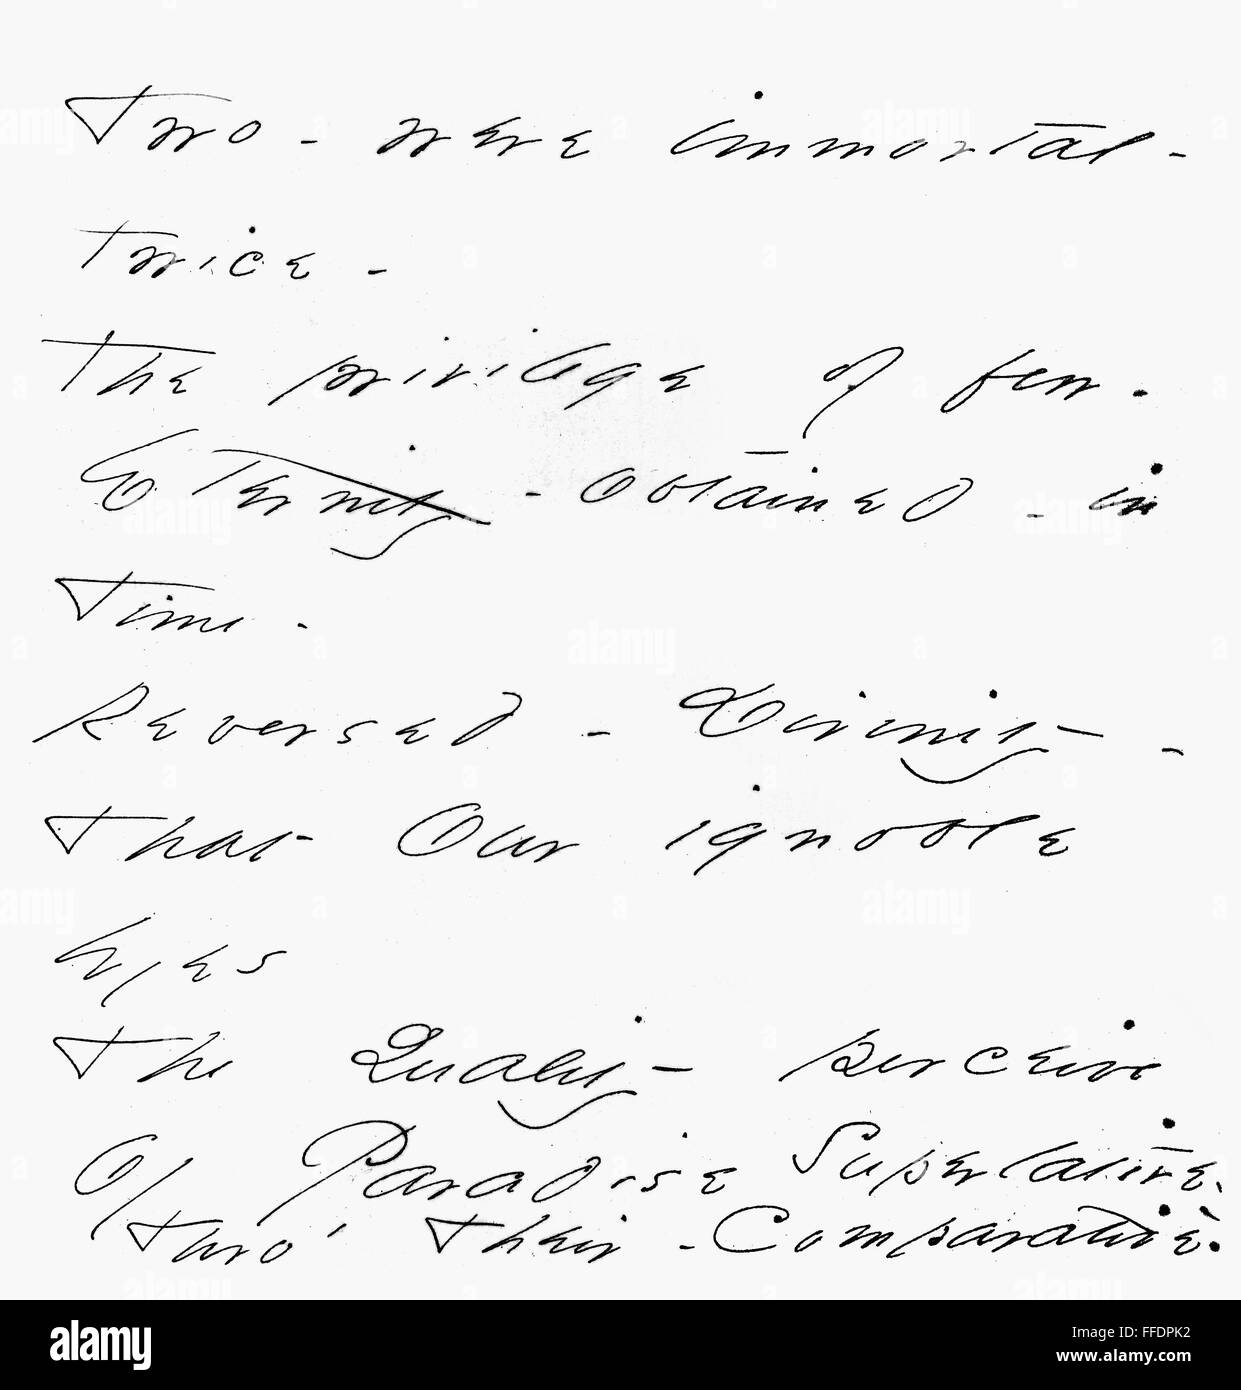 Two - were immortal -
twice -
The privilege of few -
Eternity - obtained - in
Time -
Reversed - Divinity -
That Our ignoble
Eyes
The Quality - perceive
Of Paradise Superlative -
Thro' their - Comparative.
alamy
Image ID: FFDPK2
www.alamy.com